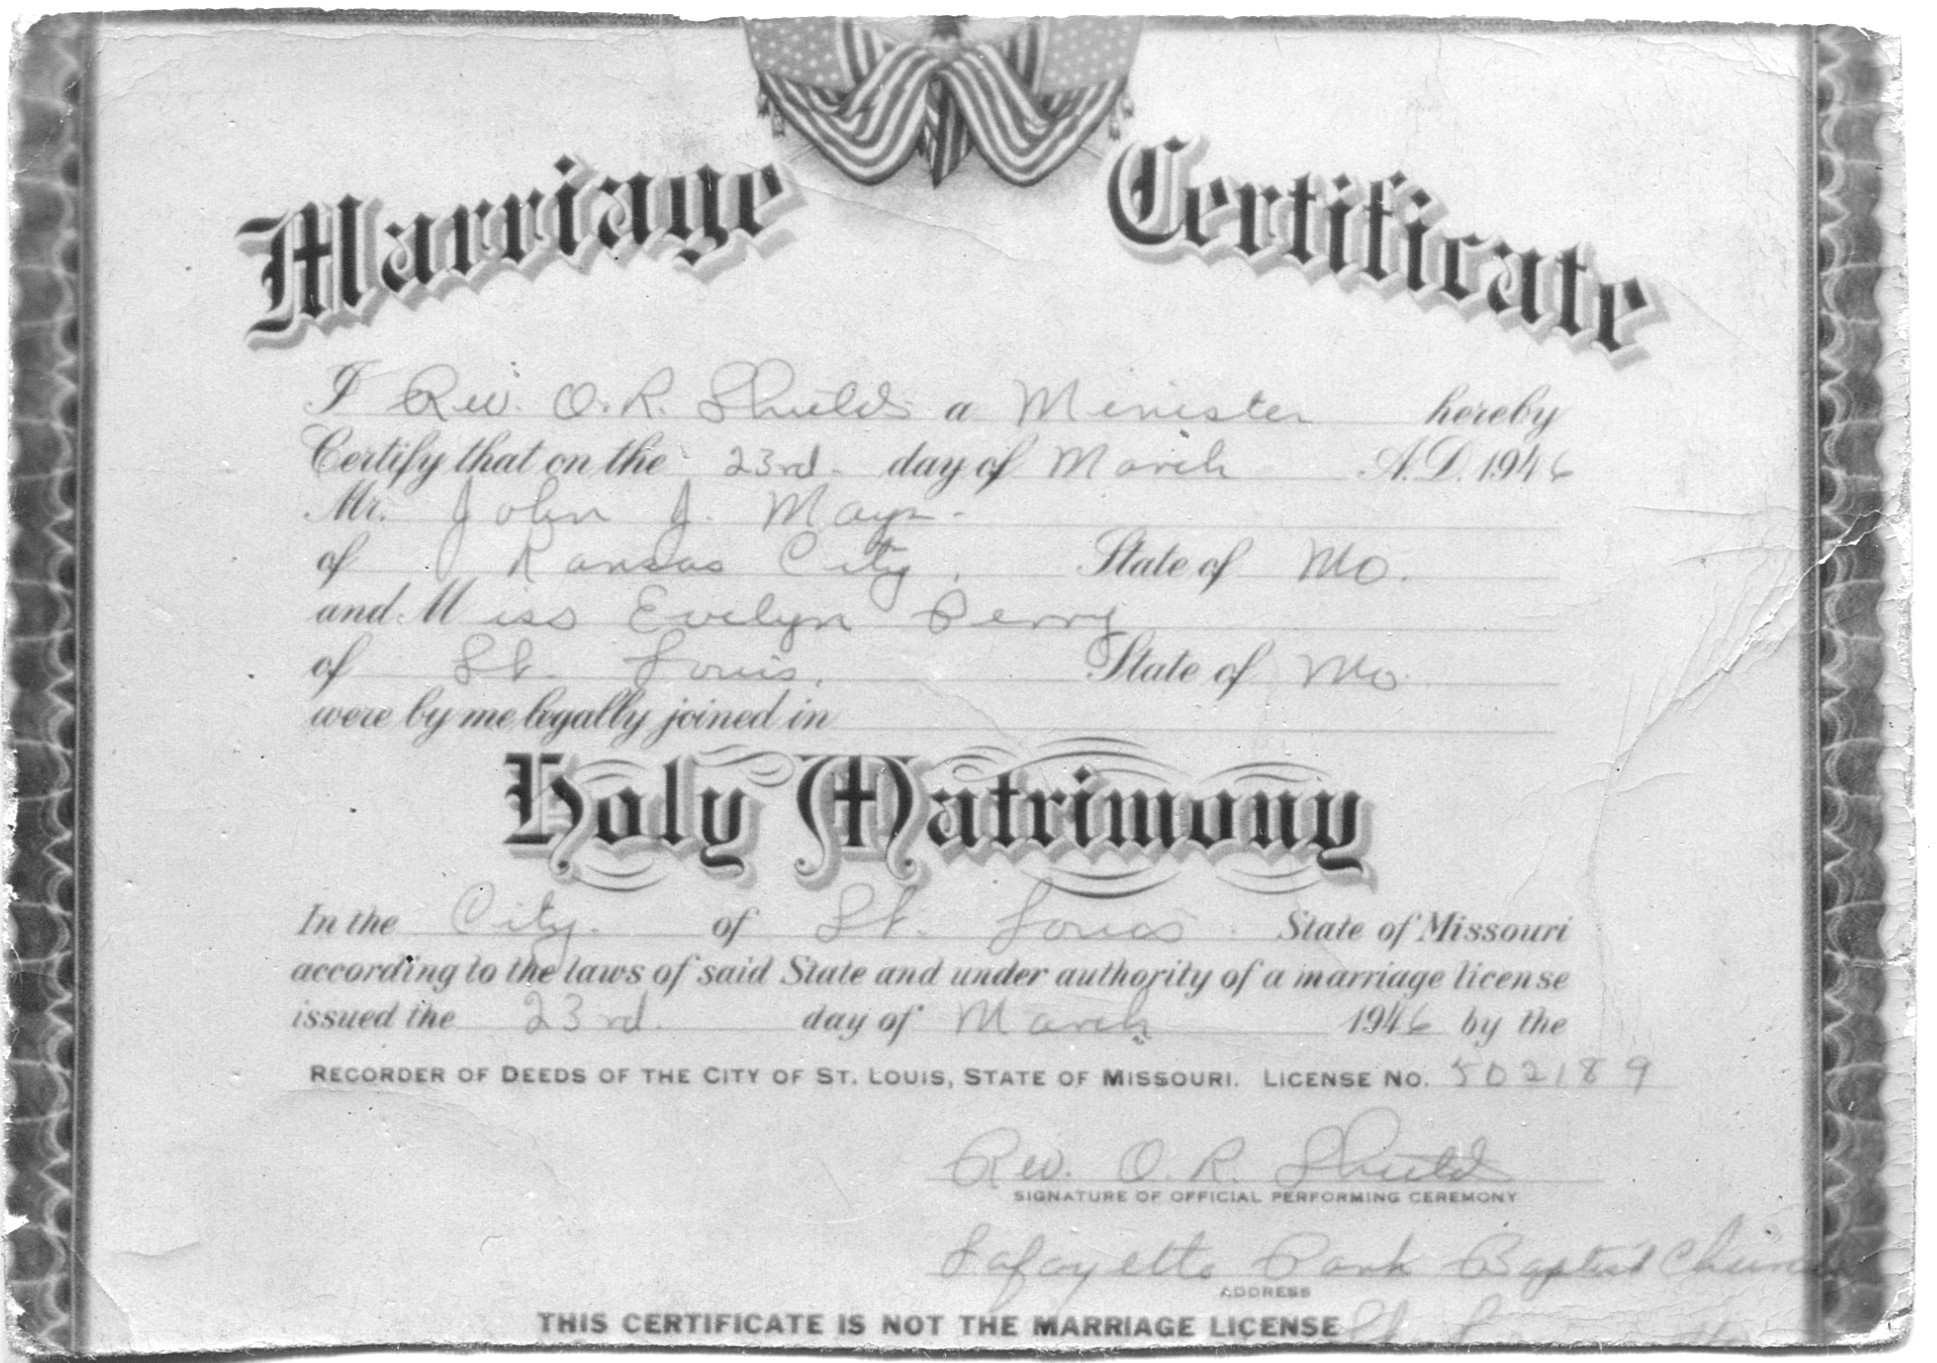 Marriage Certificate
I Rev. O. R. Shields a Minister hereby
Certify that on the 23rd. day of March A.D. 1946
Mr. John J. Mays.
of Kansas City, State of Mo.
and Miss Evelyn Perry
of St. Louis, State of Mo.
were by me legally joined in
Holy Matrimony
In the City. of St. Louis. State of Missouri
according to the laws of said State and under authority of a marriage license
issued the 23rd. day of March 1946 by the
RECORDER OF DEEDS OF THE CITY OF ST. LOUIS, STATE OF MISSOURI. LICENSE NO. 502189
Rev. O. R. Shields
SIGNATURE OF OFFICIAL PERFORMING CEREMONY
Lafayette Park Baptist Church
ADDRESS
THIS CERTIFICATE IS NOT THE MARRIAGE LICENSE St.